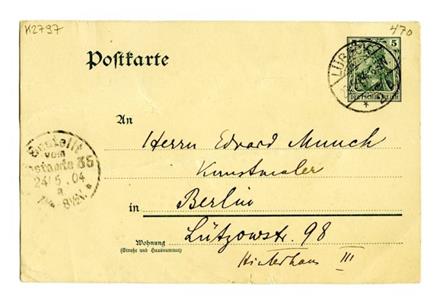 K2797
470
Postkarte
5
LÜBECK
An
Herrn Edvard Munch
Kunstmaler
in Berlin
Lützowstr. 98
Wohnung
(Straße und Hausnummer)
Hinterhaus III
Bestellt
vom
Postamte 35
24/5.04